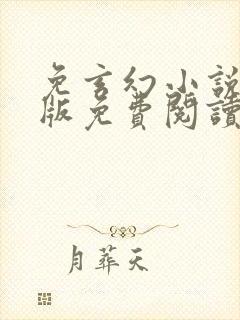 免言幻小說
版免費閱讀
月葬天